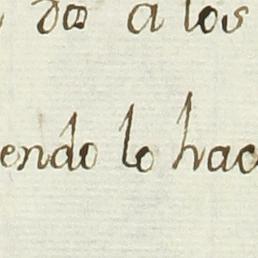 do a los
endo lo hac